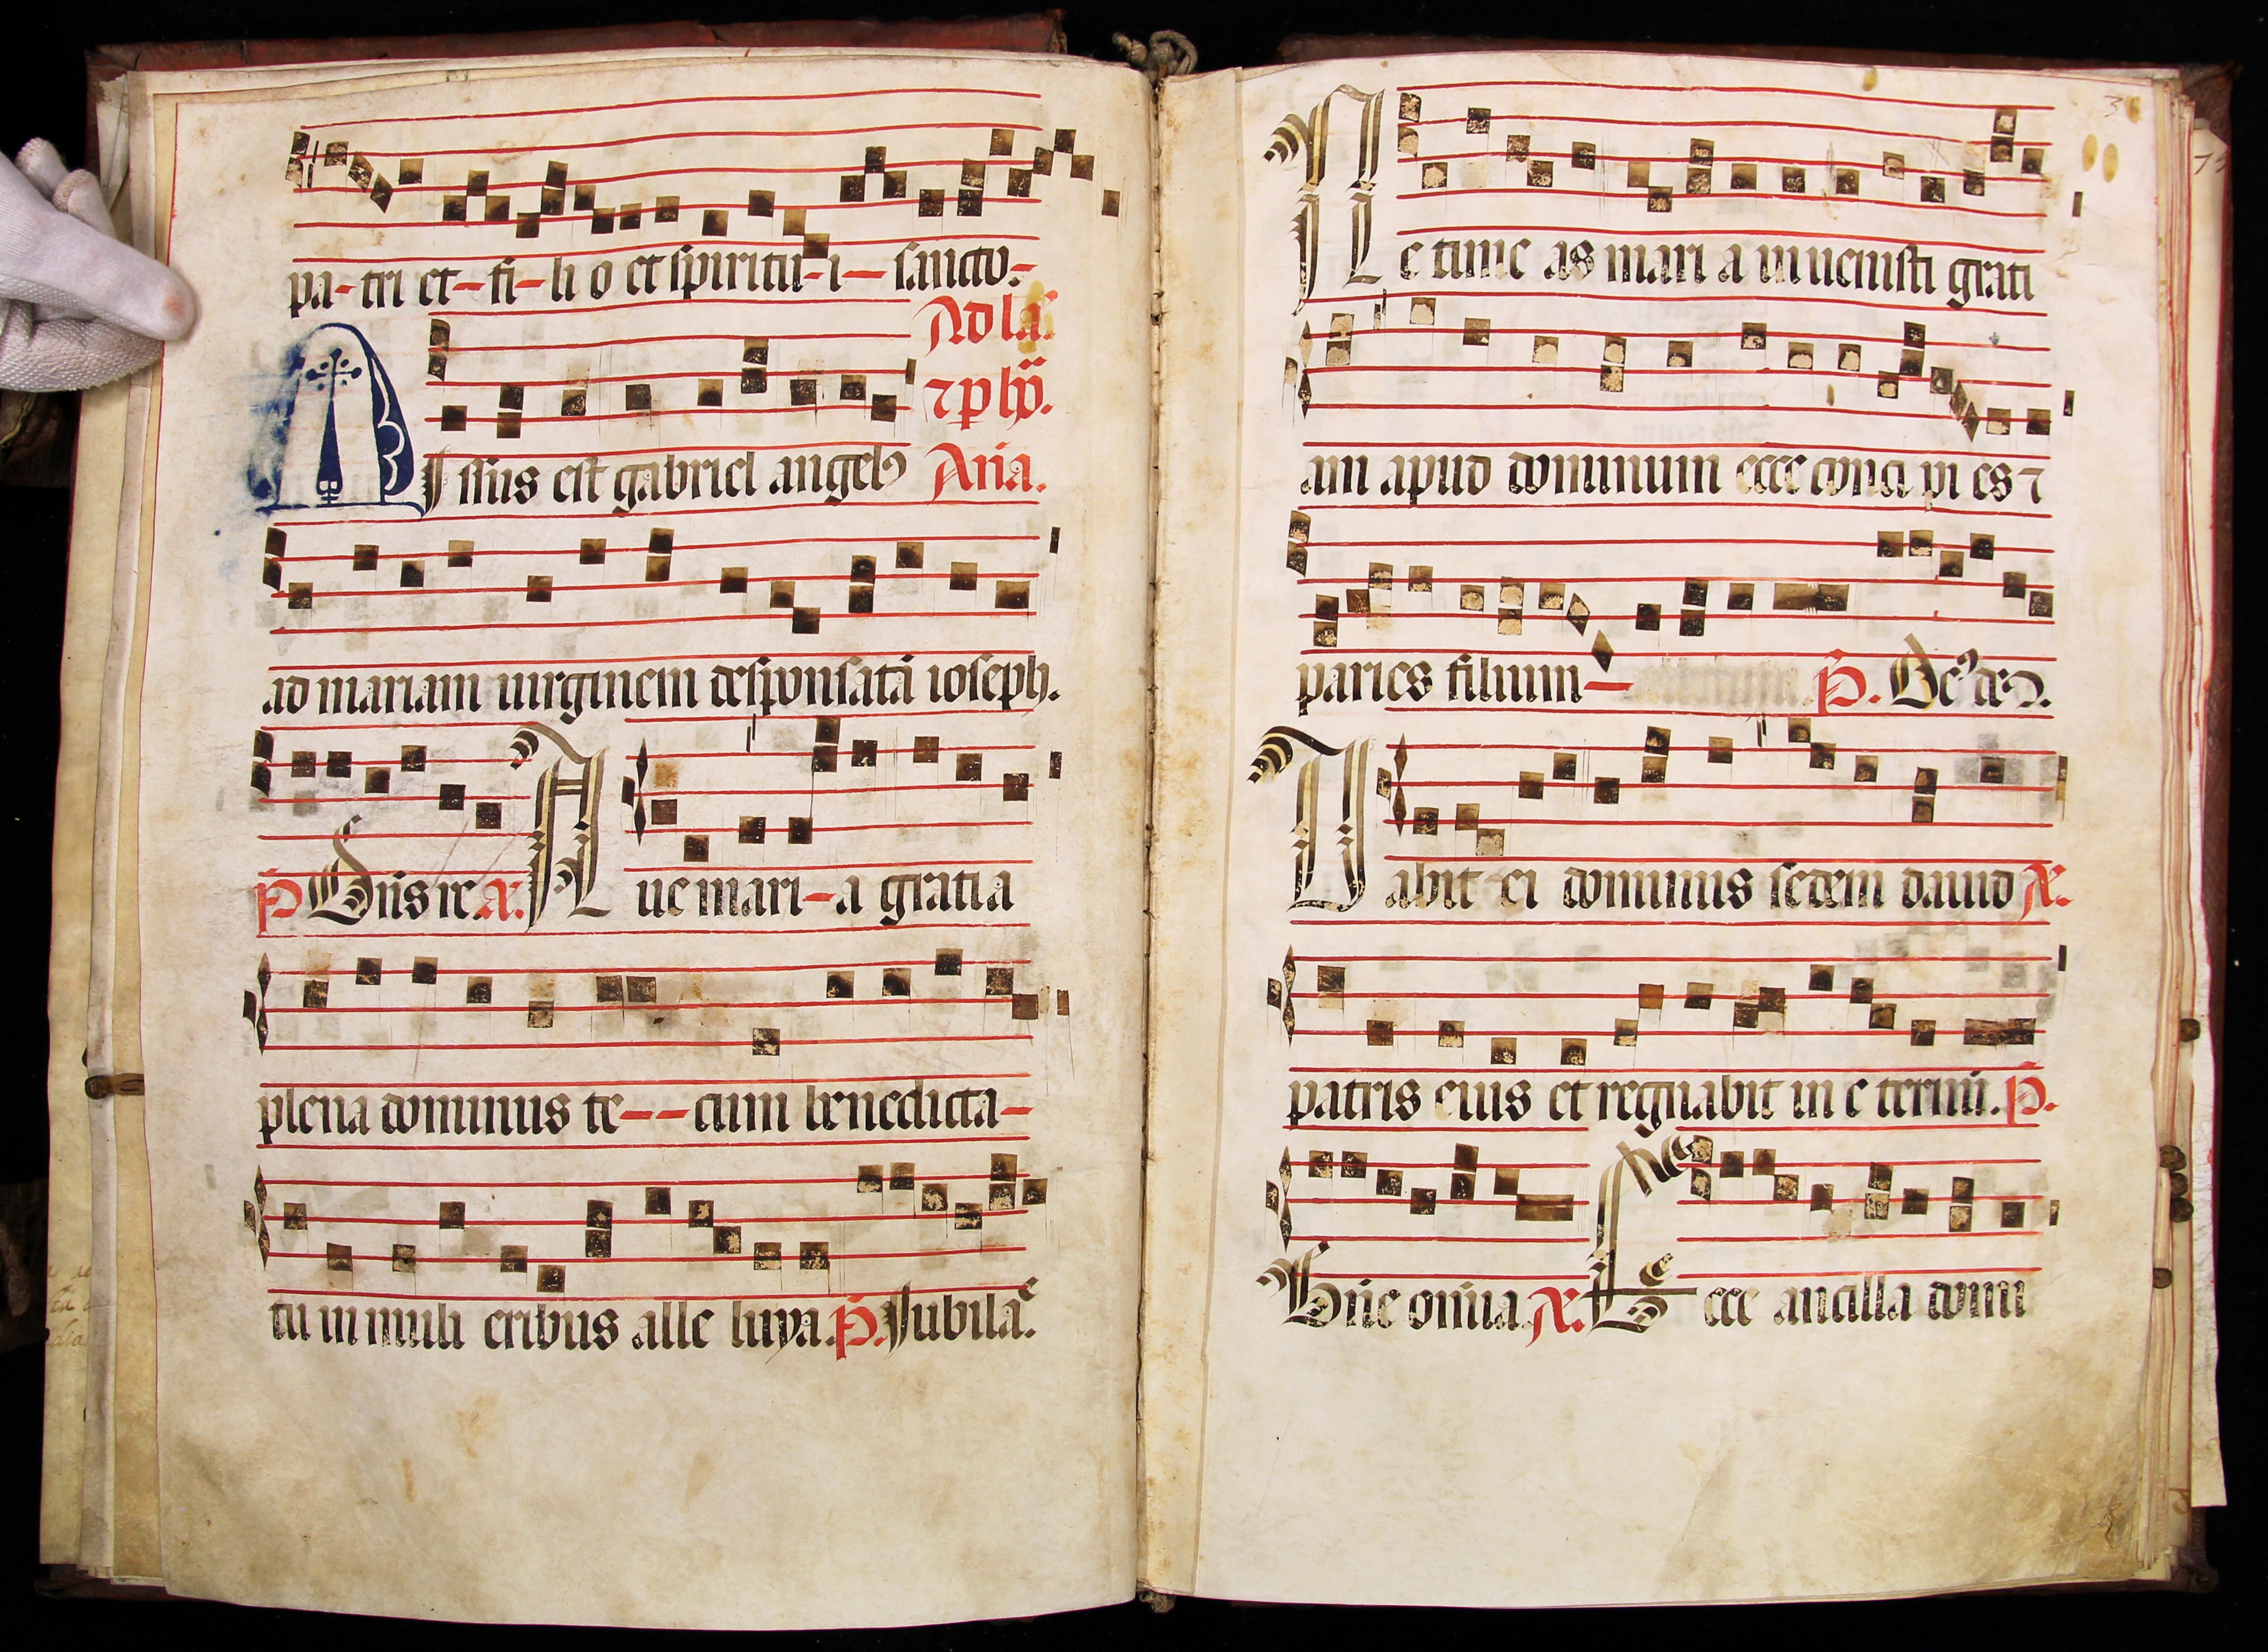 pa-tri et-fi-li o et spiritu-i-sancto-
Ad la.
⁊ p hʼ.
Missus est gabriel angelꝰ Aña.
ad mariam uirginem desponsatā ioseph.
P̄ Dn̄s re. A. Aue mari-a gratia
plena dominus te--cum benedicta-
tu in muli eribus alle luya. P̄. Jubilaͭe.
3
Ne time as mari a inuenisti grati
am apud dominum ecce conci pi es ⁊
paries filium- P̄. Deꝰ deꝰ.
Dabit ei dominus sedem dauid A.
patris eius et regnabit in e ternū. P̄.
Bn̄e om̄ia. A. Ecce ancilla domi